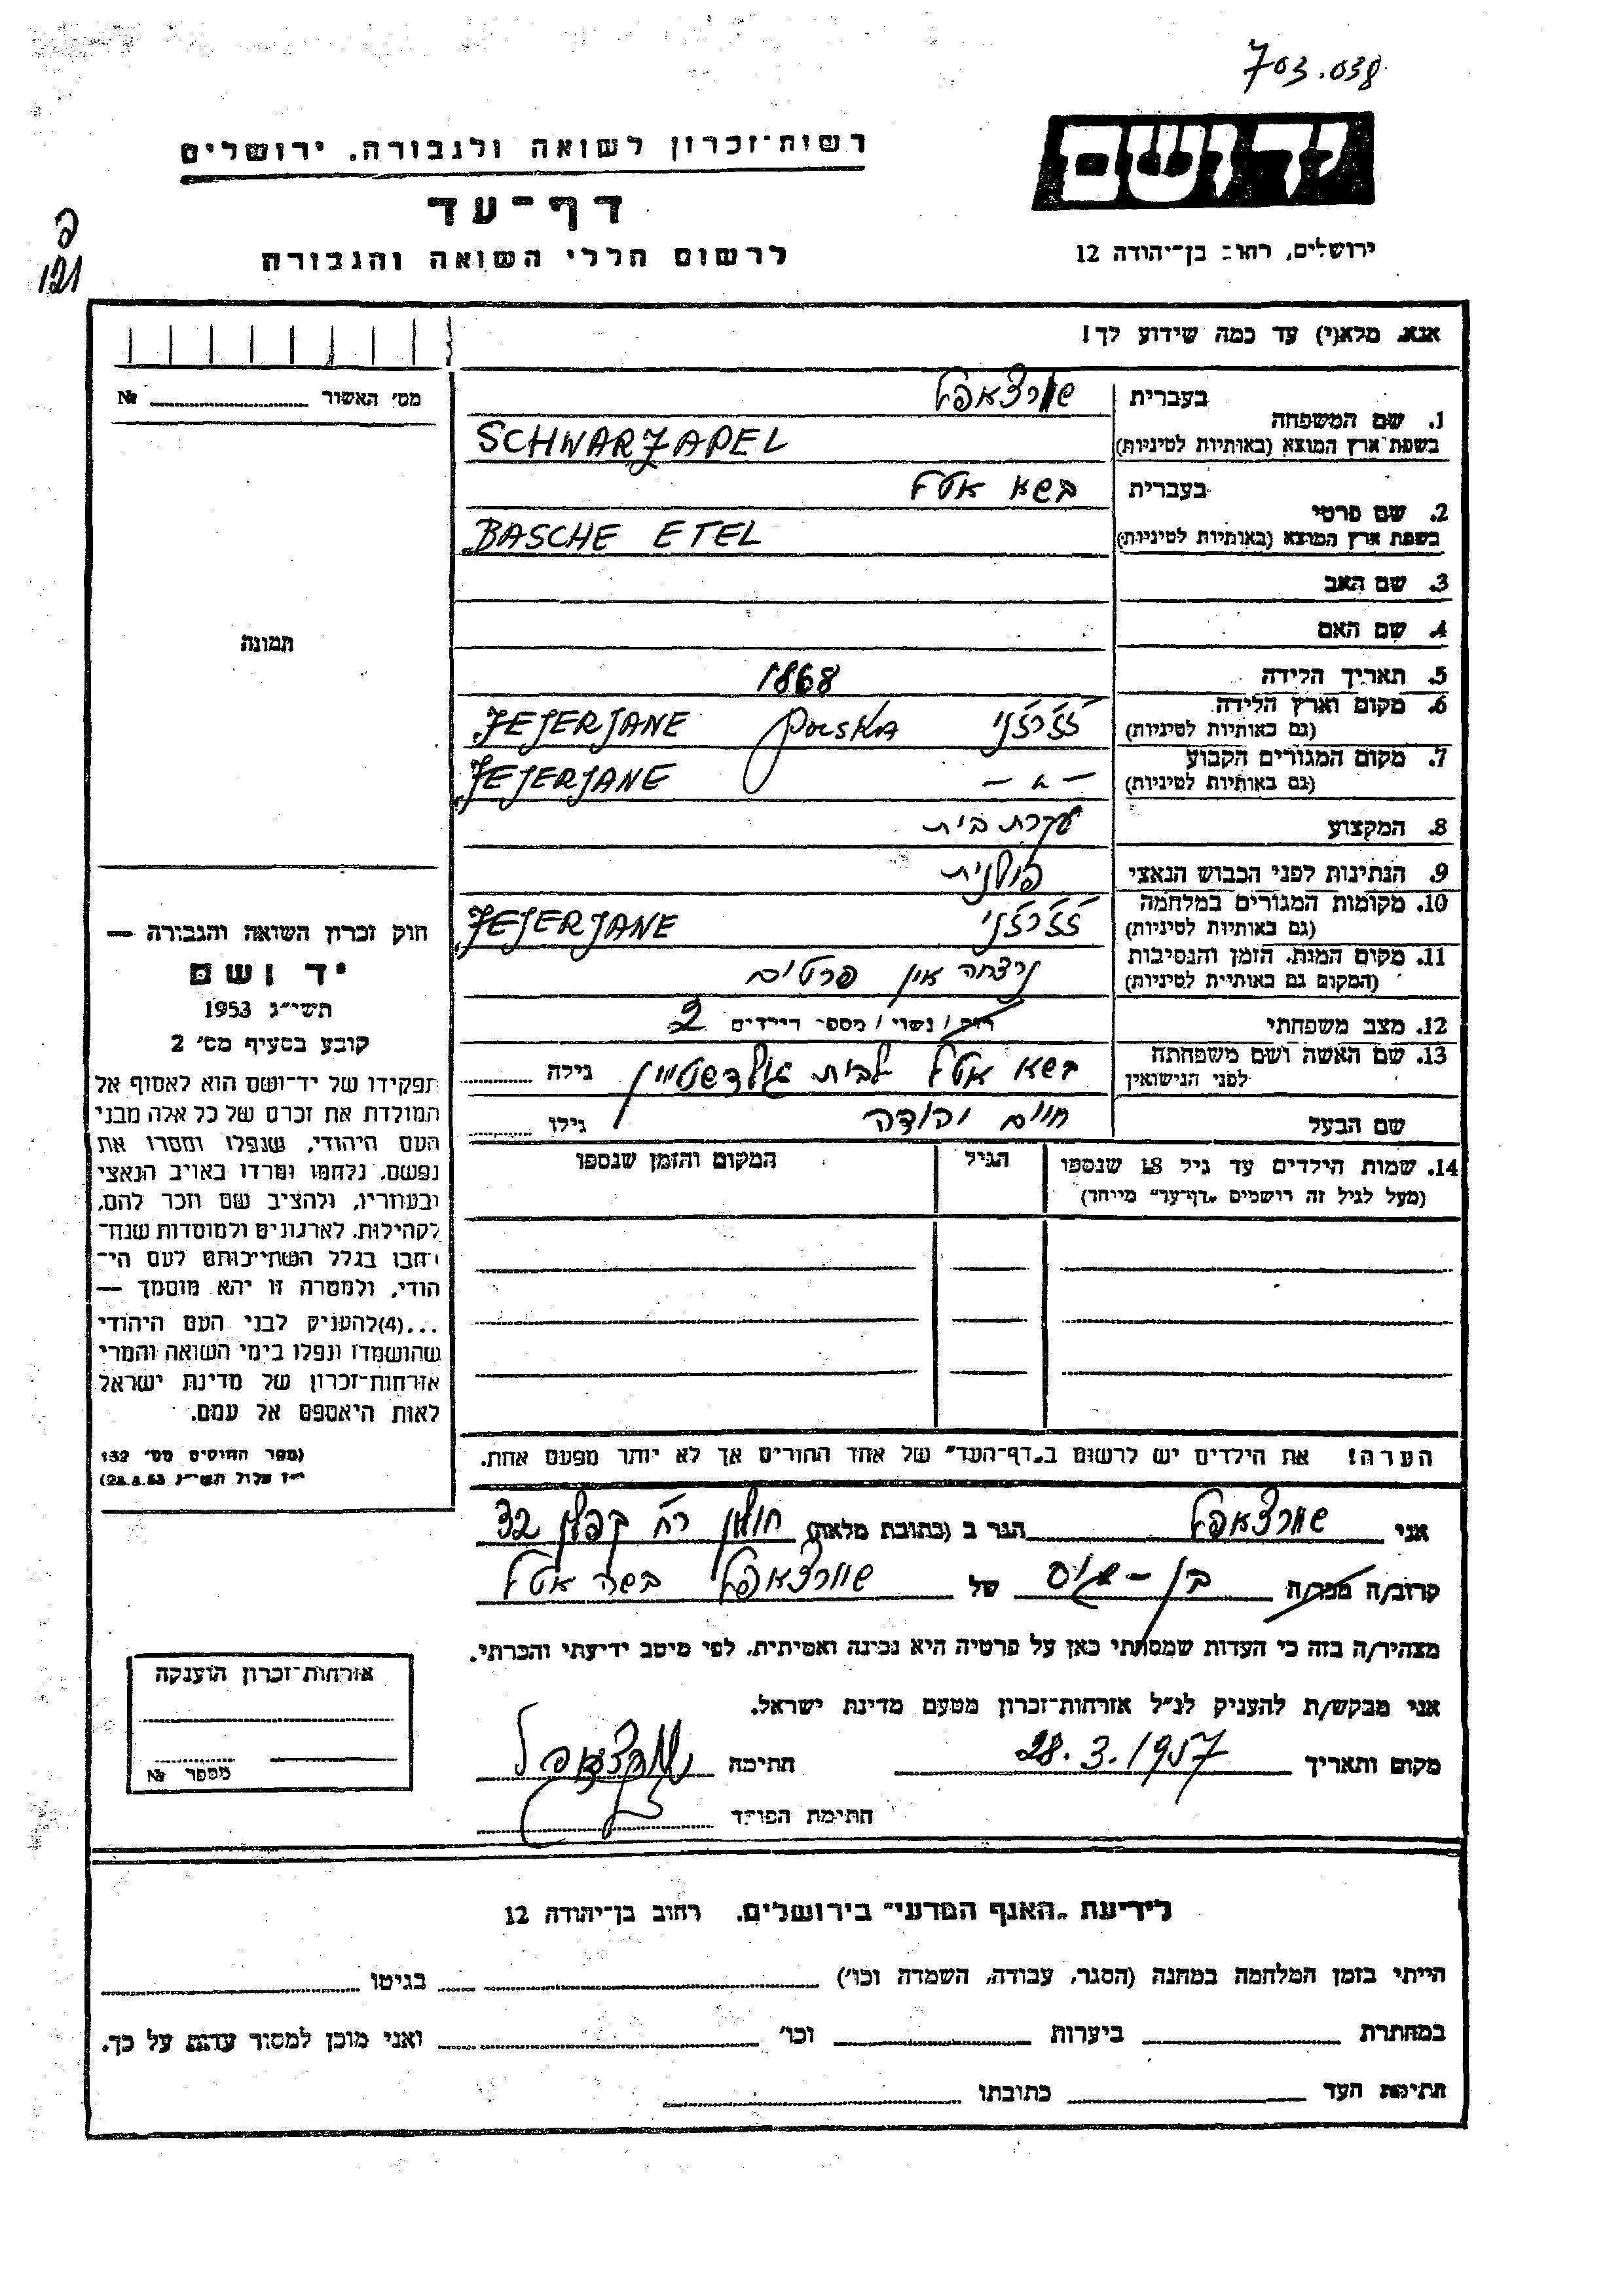 703.038
יד ושם
רשות־זכרון לשואה ולגבורה, ירושלים
דף־עד
לרשום חללי השואה והגבורה
ירושלים, רחוב בן־יהודה 12
121
אנא, מלא(י) עד כמה שידוע לך!
מס׳ האשור № 
1. שם המשפחה בעברית שוורצאפל
בשפת ארץ המוצא (באותיות לטיניות) SCHWARZAPEL
2. שם פרטי בעברית בשא אטל
בשפת ארץ המוצא (באותיות לטיניות) BASCHE ETEL
3. שם האב
4. שם האם
תמונה
5. תאריך הלידה 1868
6. מקום וארץ הלידה (גם באותיות לטיניות) POLSKA JEJERJANE
7. מקום המגורים הקבוע (גם באותיות לטיניות) – " – JEJERJANE
8. המקצוע עקרת בית
9. הנתינות לפני הכבוש הנאצי פולנית
10. מקומות המגורים במלחמה (גם באותיות לטיניות) JEJERJANE
11. מקום המות, הזמן והנסיבות (המקום גם באותיות לטיניות) נרצחה אין פרטים
12. מצב משפחתי רווק / נשוי / מספר הילדים 2
13. שם האשה ושם משפחתה לפני הנישואין בשא אטל לבית גולדשטיין גילה
שם הבעל חיים יהודה גילו
14. שמות הילדים עד גיל 18 שנספו
(מעל לגיל זה רושמים „דף־עד" מיוחד)
הגיל
המקום והזמן שנספו
חוק זכרון השואה והגבורה —
יד ושם
תשי״ג 1953
קובע בסעיף מס׳ 2
תפקידו של יד־ושם הוא לאסוף אל
המולדת את זכרם של כל אלה מבני
העם היהודי, שנפלו ומסרו את
נפשם, נלחמו ומרדו באויב הנאצי
ובעוזריו, ולהציב שם וזכר להם,
לקהילות, לארגונים ולמוסדות שנח־
רבו בגלל השתייכותם לעם הי־
הודי, ולמטרה זו יהא מוסמך —
...(4)להעניק לבני העם היהודי
שהושמדו ונפלו בימי השואה והמרי
אזרחות־זכרון של מדינת ישראל
לאות היאספם אל עמם.
(ספר החוקים מס׳ 132
י״ז אלול תשי״ג 28.8.53)
הערה! את הילדים יש לרשום ב„דף־העד" של אחד ההורים אך לא יותר מפעם אחת.
אני שוורצאפל הגר ב (כתובת מלאה) חולון רח׳ קפלן 32
קרוב/ה מכר/ה בן – של שוורצאפל בשה אטל
מצהיר/ה בזה כי העדות שמסרתי כאן על פרטיה היא נכונה ואמיתית, לפי מיטב ידיעתי והכרתי.
אני מבקש/ת להעניק לנ״ל אזרחות־זכרון מטעם מדינת ישראל.
מקום ותאריך 28.3.1957 חתימה שוורצאפל
חתימת הפוקד
אזרחות־זכרון הוענקה
מספר №
לידיעת „האגף המדעי" בירושלים, רחוב בן־יהודה 12
הייתי בזמן המלחמה במחנה (הסגר, עבודה, השמדה וכו׳) בגיטו
במחתרת ביערות וכו׳ ואני מוכן למסור עדות על כך.
חתימת העד כתובתו